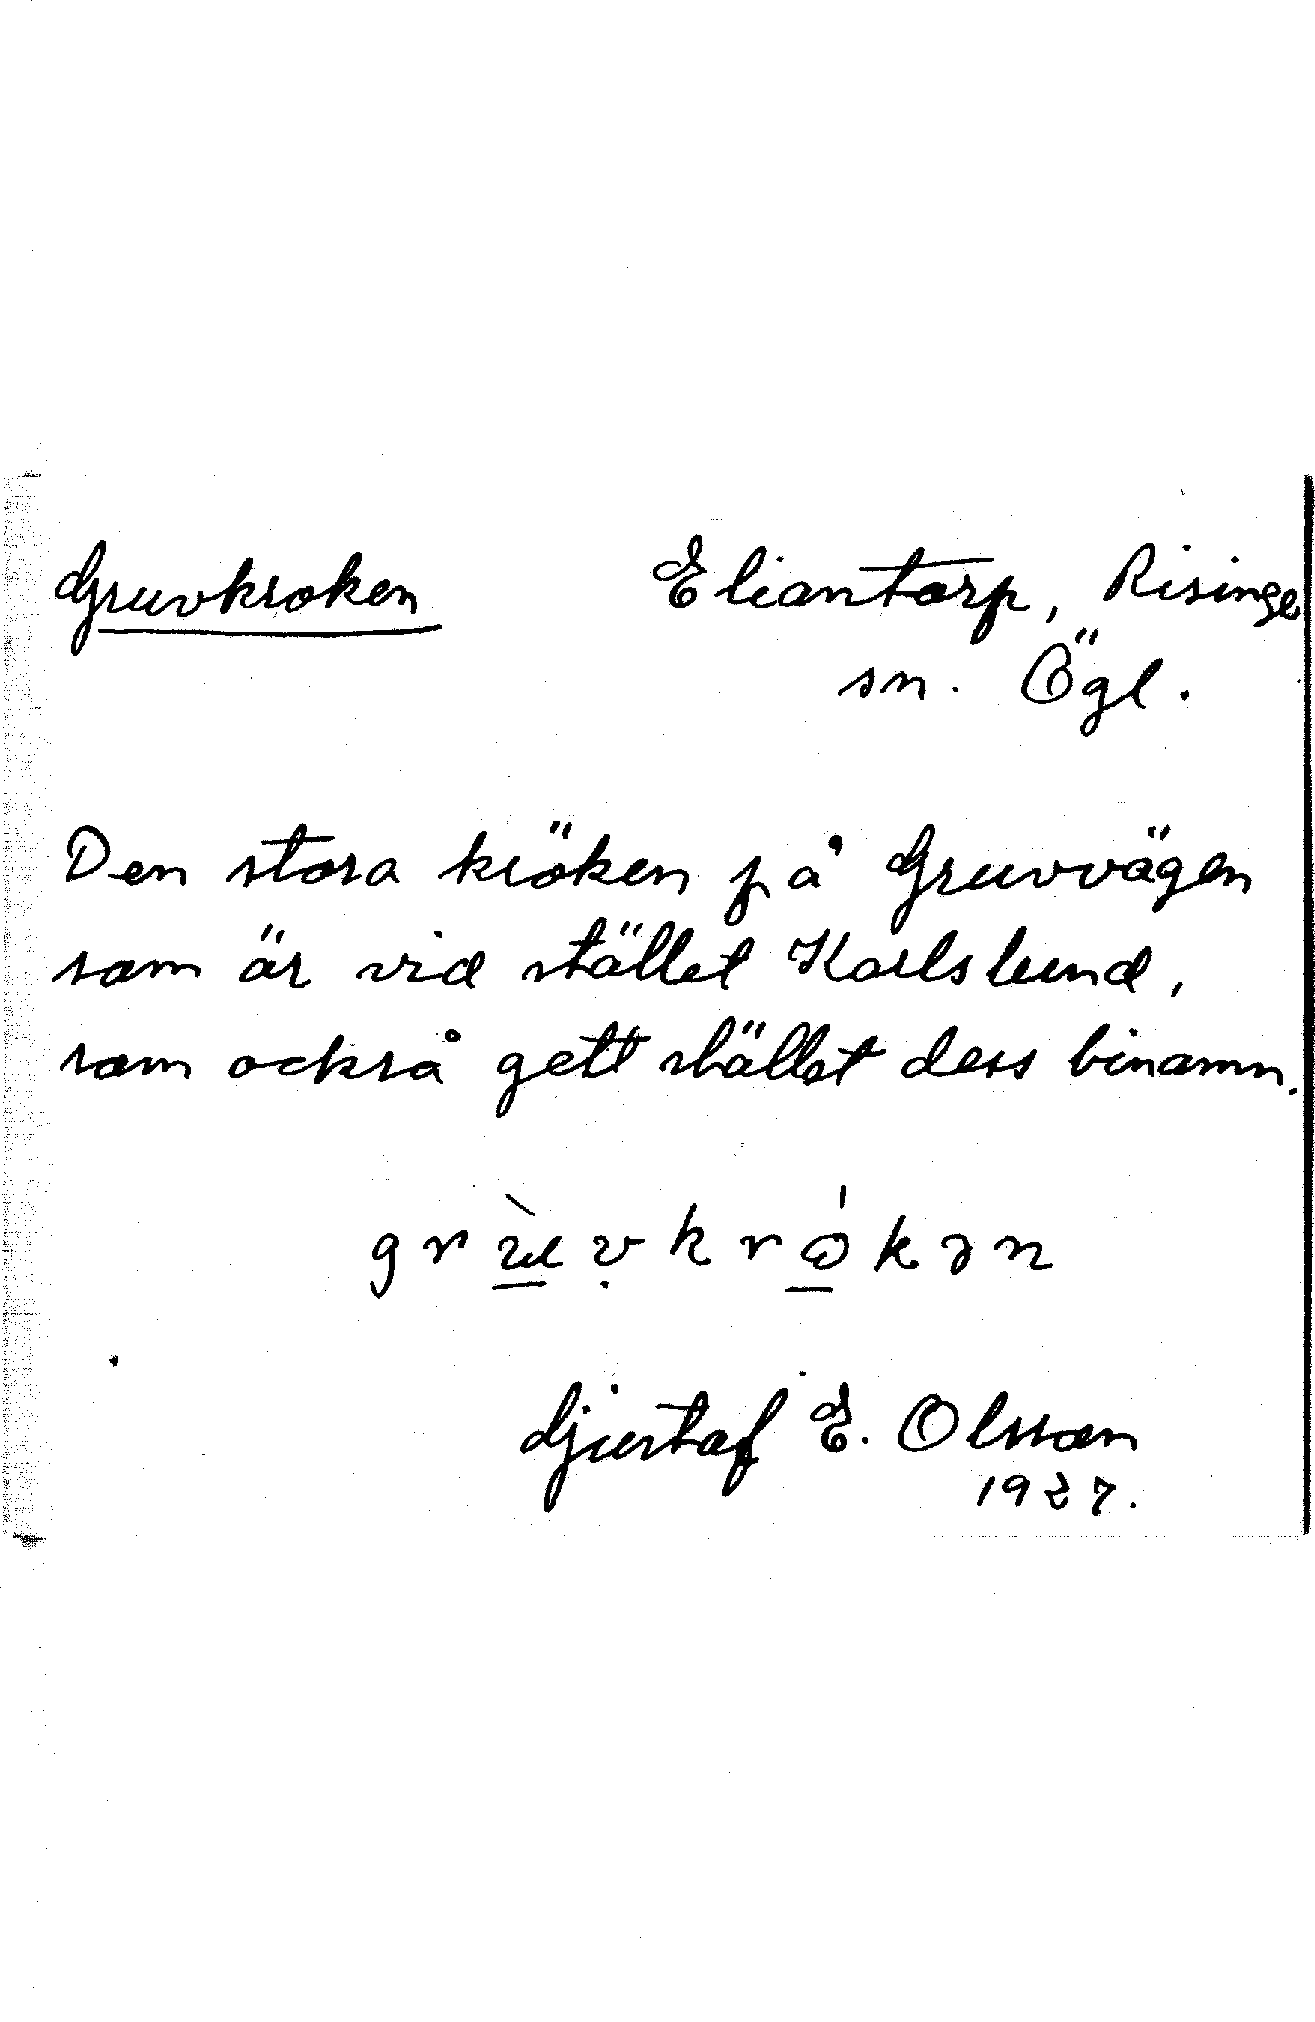 Gruvkroken Eliantorp, Risinge
sn. Ögl.
Den stora kröken på Gruvvägen
som är vid stället Karlslund,
som också gett stället dess binamn.
Gjustaf E. Olsson
1927.